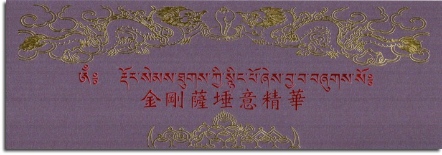 ༄༅༔ རྡོར་སེམས་ཐུགས་ཀྱི་སྙིང་པོ་ཞེས་བྱ་བ་བཞུགས་སོ༔
金剛薩埵意精華